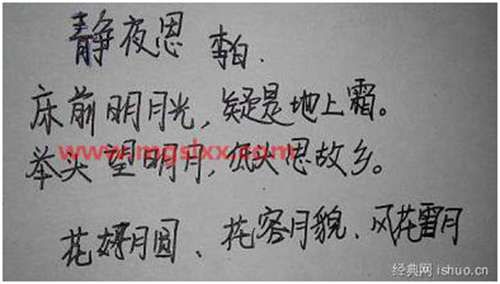 静夜思 李白.
床前明月光,疑是地上霜。
www.mgslxx.com
举头望明月,低头思故乡。
花好月圆、花容月貌、风花雪月
经典网 ishuo.cn